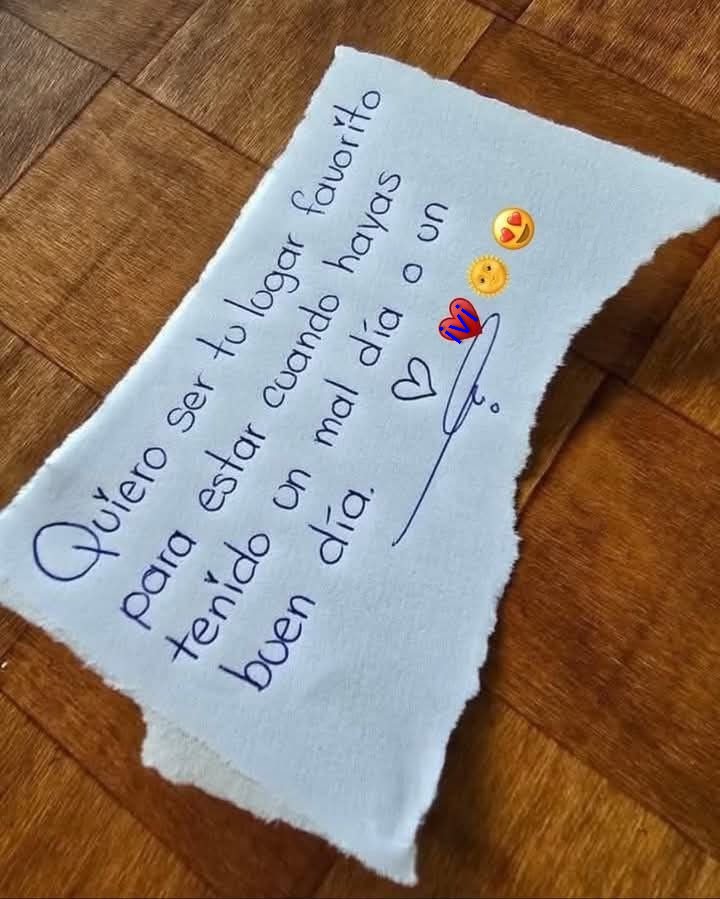 Quiero ser tu lugar favorito
para estar cuando hayas
tenido un mal día o un
buen día.
ivi